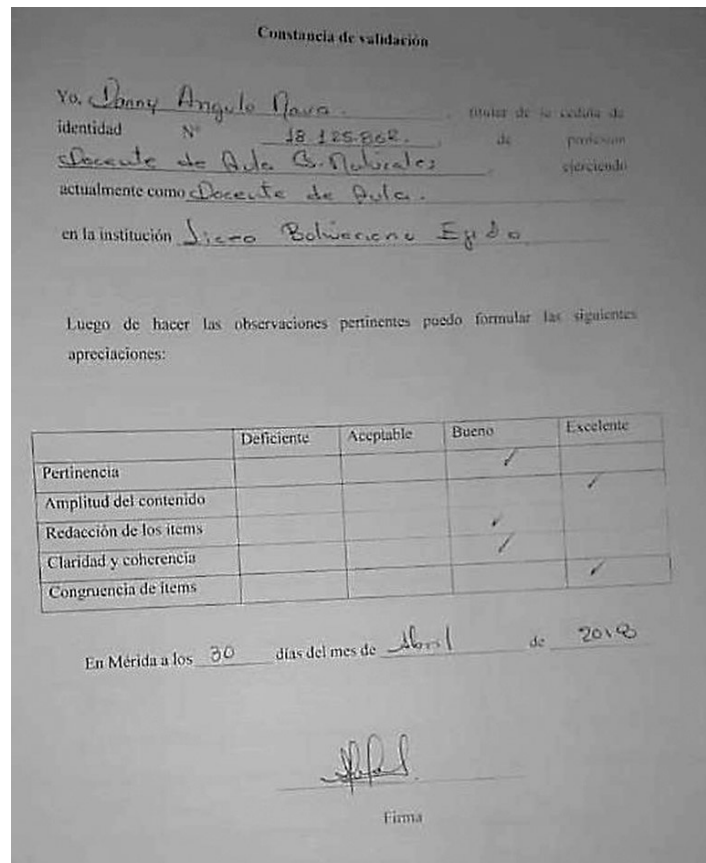 Constancia de validación
Yo, Danny Angulo Nava. , titular de la cedula de
identidad N° 18.125.862. , de profesion
Docente de Aula C. Naturales , ejerciendo
actualmente como Docente de Aula.
en la institución Liceo Bolivariano Ejido
Luego de hacer las observaciones pertinentes puedo formular las siguientes
apreciaciones:
Deficiente Aceptable Bueno Excelente
Pertinencia ✓
Amplitud del contenido ✓
Redacción de los items ✓
Claridad y coherencia ✓
Congruencia de items ✓
En Mérida a los 30 días del mes de Abril de 2018
Firma